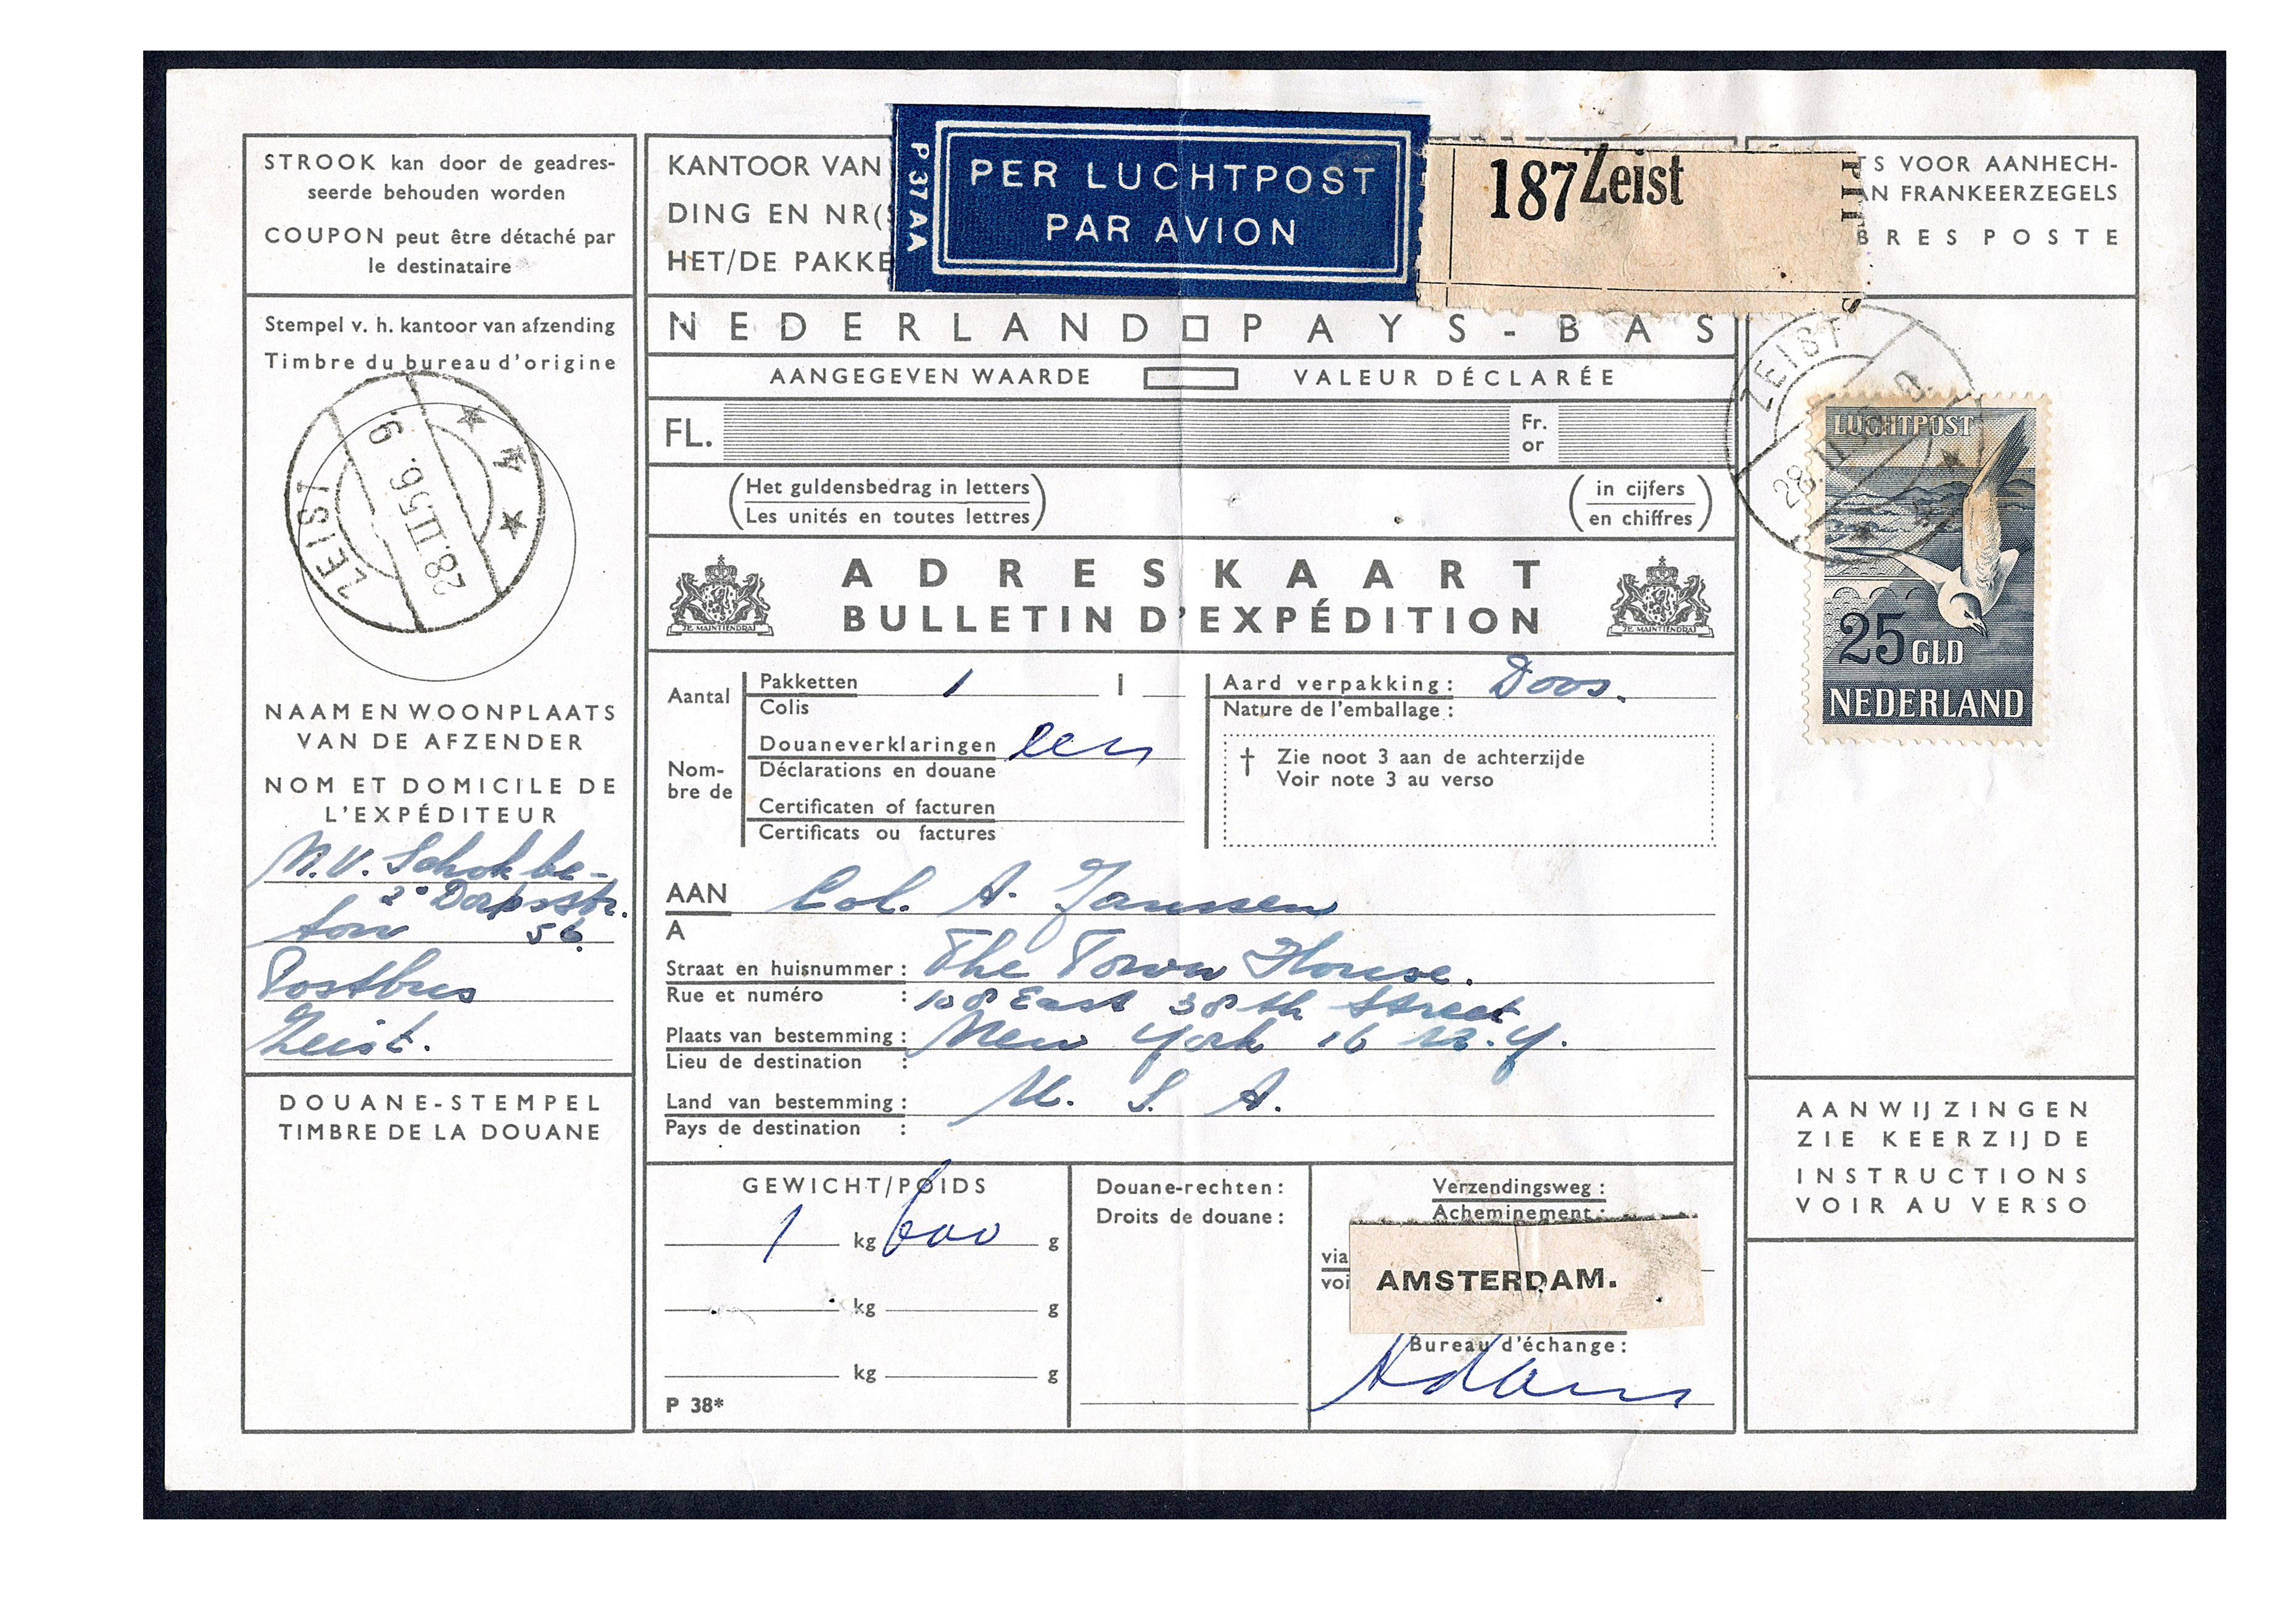 STROOK kan door de geadres-
seerde behouden worden
COUPON peut être détaché par
le destinataire
Stempel v. h. kantoor van afzending
Timbre du bureau d'origine
ZEIST
28.II.56. 9
A
NAAM EN WOONPLAATS
VAN DE AFZENDER
NOM ET DOMICILE DE
L'EXPÉDITEUR
N.V. Schokbe-
2e Dorpsstr.
ton 56
Postbus
Zeist.
DOUANE-STEMPEL
TIMBRE DE LA DOUANE
KANTOOR VAN
DING EN NR(S
HET/DE PAKKE
P 37 AA
PER LUCHTPOST
PAR AVION
187 Zeist
NEDERLAND PAYS-BAS
AANGEGEVEN WAARDE VALEUR DÉCLARÉE
FL. Fr.
or
(Het guldensbedrag in letters) (in cijfers)
(Les unités en toutes lettres) (en chiffres)
ADRESKAART
BULLETIN D'EXPÉDITION
JE MAINTIENDRAI JE MAINTIENDRAI
Aantal Pakketten 1 I
Colis
Douaneverklaringen een
Nom-
bre de Déclarations en douane
Certificaten of facturen
Certificats ou factures
Aard verpakking: Doos.
Nature de l'emballage:
† Zie noot 3 aan de achterzijde
Voir note 3 au verso
AAN Col. A. Janssen
A
Straat en huisnummer: The Town House.
Rue et numéro : 108 East 38th Street
Plaats van bestemming: New York 16 N.Y.
Lieu de destination :
Land van bestemming: U. S. A.
Pays de destination :
GEWICHT/POIDS
1 kg 600 g
kg g
kg g
P 38*
Douane-rechten:
Droits de douane:
Verzendingsweg:
Acheminement:
via
voi
AMSTERDAM.
Bureau d'échange:
Adam
TS VOOR AANHECH-
AN FRANKEERZEGELS
BRES POSTE
ZEIST
28.II
LUCHTPOST
25 GLD
NEDERLAND
AANWIJZINGEN
ZIE KEERZIJDE
INSTRUCTIONS
VOIR AU VERSO